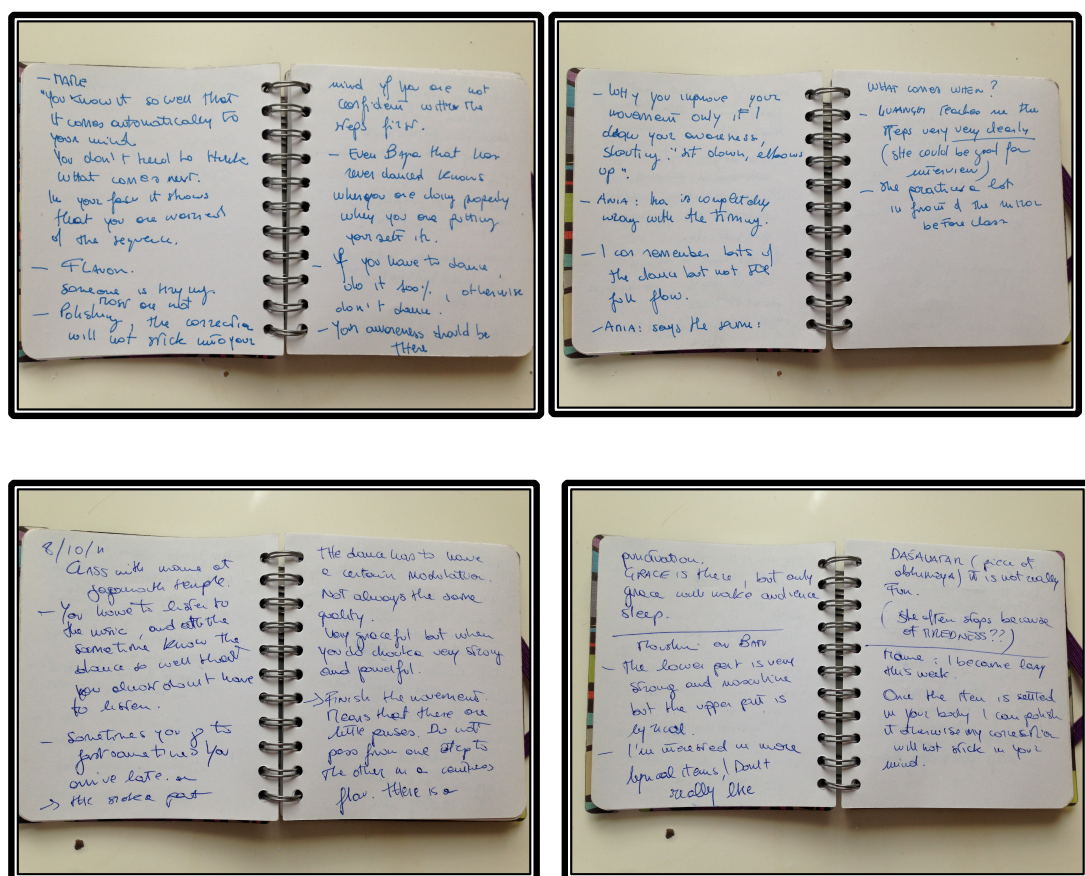 - MAME
"You know it so well that
it comes automatically to
your mind
You don't need to think
what comes next.
In your face it shows
that you are worried
of the sequence.
- FLAVOR.
Someone is trying
now or not
- Polishing, the correction
will not stick into your
mind if you are not
confident with the
steps first.
- Even Bapa that has
never danced knows
when you are doing properly
when you are putting
yourself in.
- If you have to dance,
do it 100%, otherwise
don't dance.
- Your awareness should be
there
- Why you improve your
movement only if I
draw your awareness,
shouting: "sit down, elbows
up".
- ANIA: is completely
wrong with the timing.
- I can remember bits of
the dance but not
full flow.
- ANIA: says the same:
WHAT COMES WHEN?
- teaches me the
steps very very clearly
(she could be good for
interview)
- she practices a lot
in front of the mirror
before class
8/10/11
Class with mame at
Jagannath temple.
- You have to listen to
the music, and at the
same time know the
dance so well that
you almost don't have
to listen.
- Sometimes you go to
fast sometimes you
arrive late.
→ the part
The dance has to have
a certain modulation.
Not always the same
quality.
Very graceful but when
you do chowka very strong
and powerful.
→ Finish the movement.
Means that there are
little pauses. Do not
pass from one step to
the other in a
flow. There is a
punctuation.
GRACE is there, but only
grace will make audience
sleep.
on BATU
- The lower part is very
strong and masculine
but the upper part is
lyrical.
- I'm interested in more
lyrical items, I don't
really like
DASAVATAR (piece of
abhinaya) it is not really
fun.
(she often stops because
of TIREDNESS??)
Mame: I became lazy
this week.
Once the item is settled
in your body I can polish
it otherwise my correction
will not stick in your
mind.